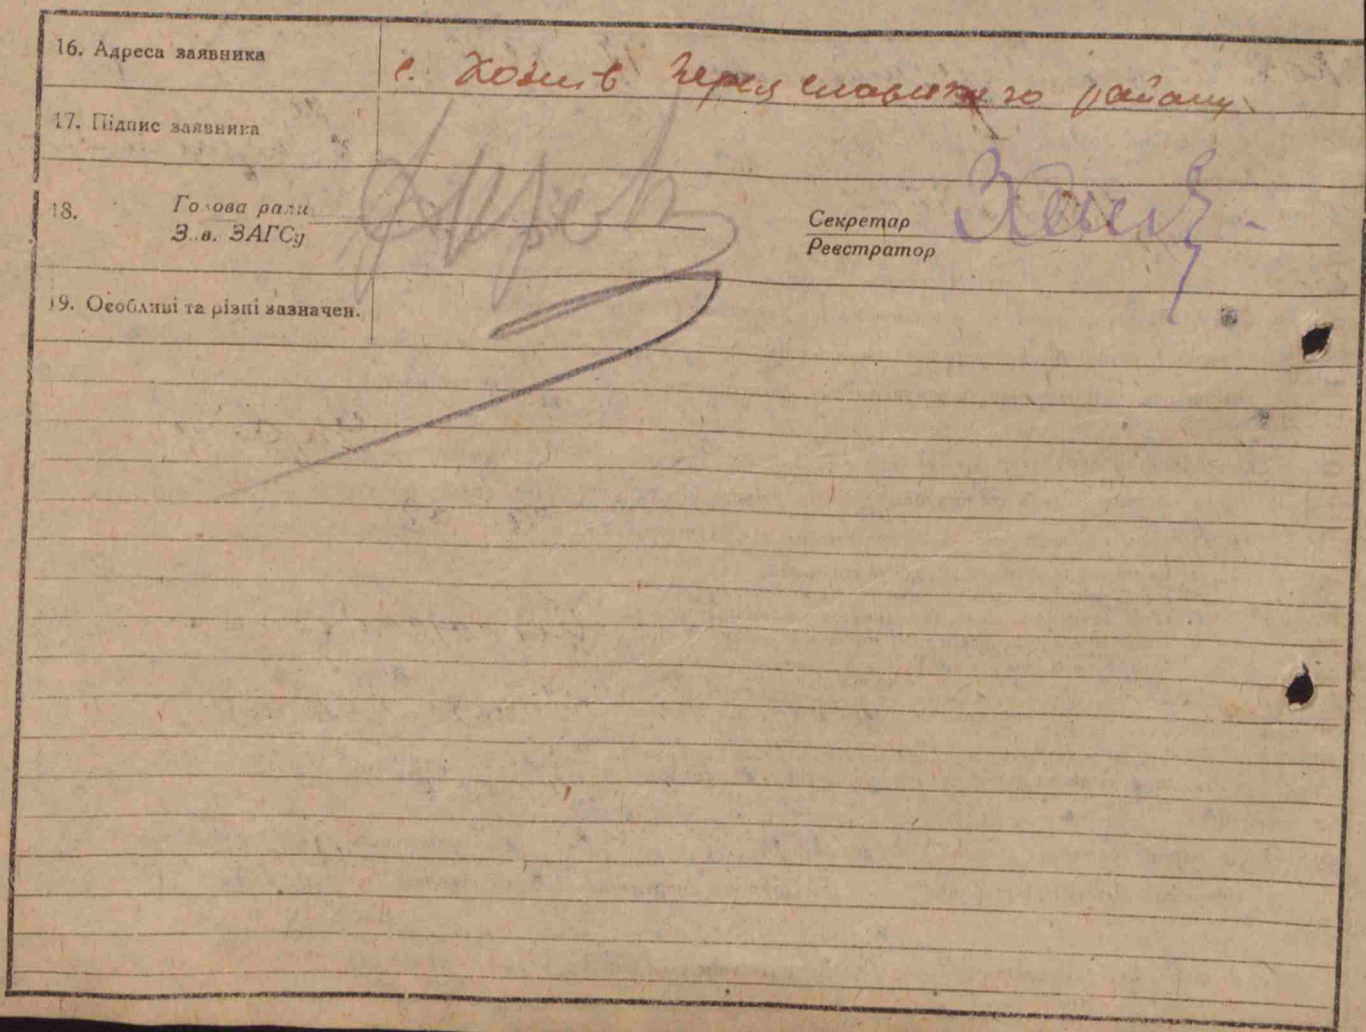 16. Адреса заявника с. Хоцьків Переяславського району
17. Підпис заявника
18. Голова ради Секретар
Зав. ЗАГСу Реєстратор
19. Особливі та різні зазначен.